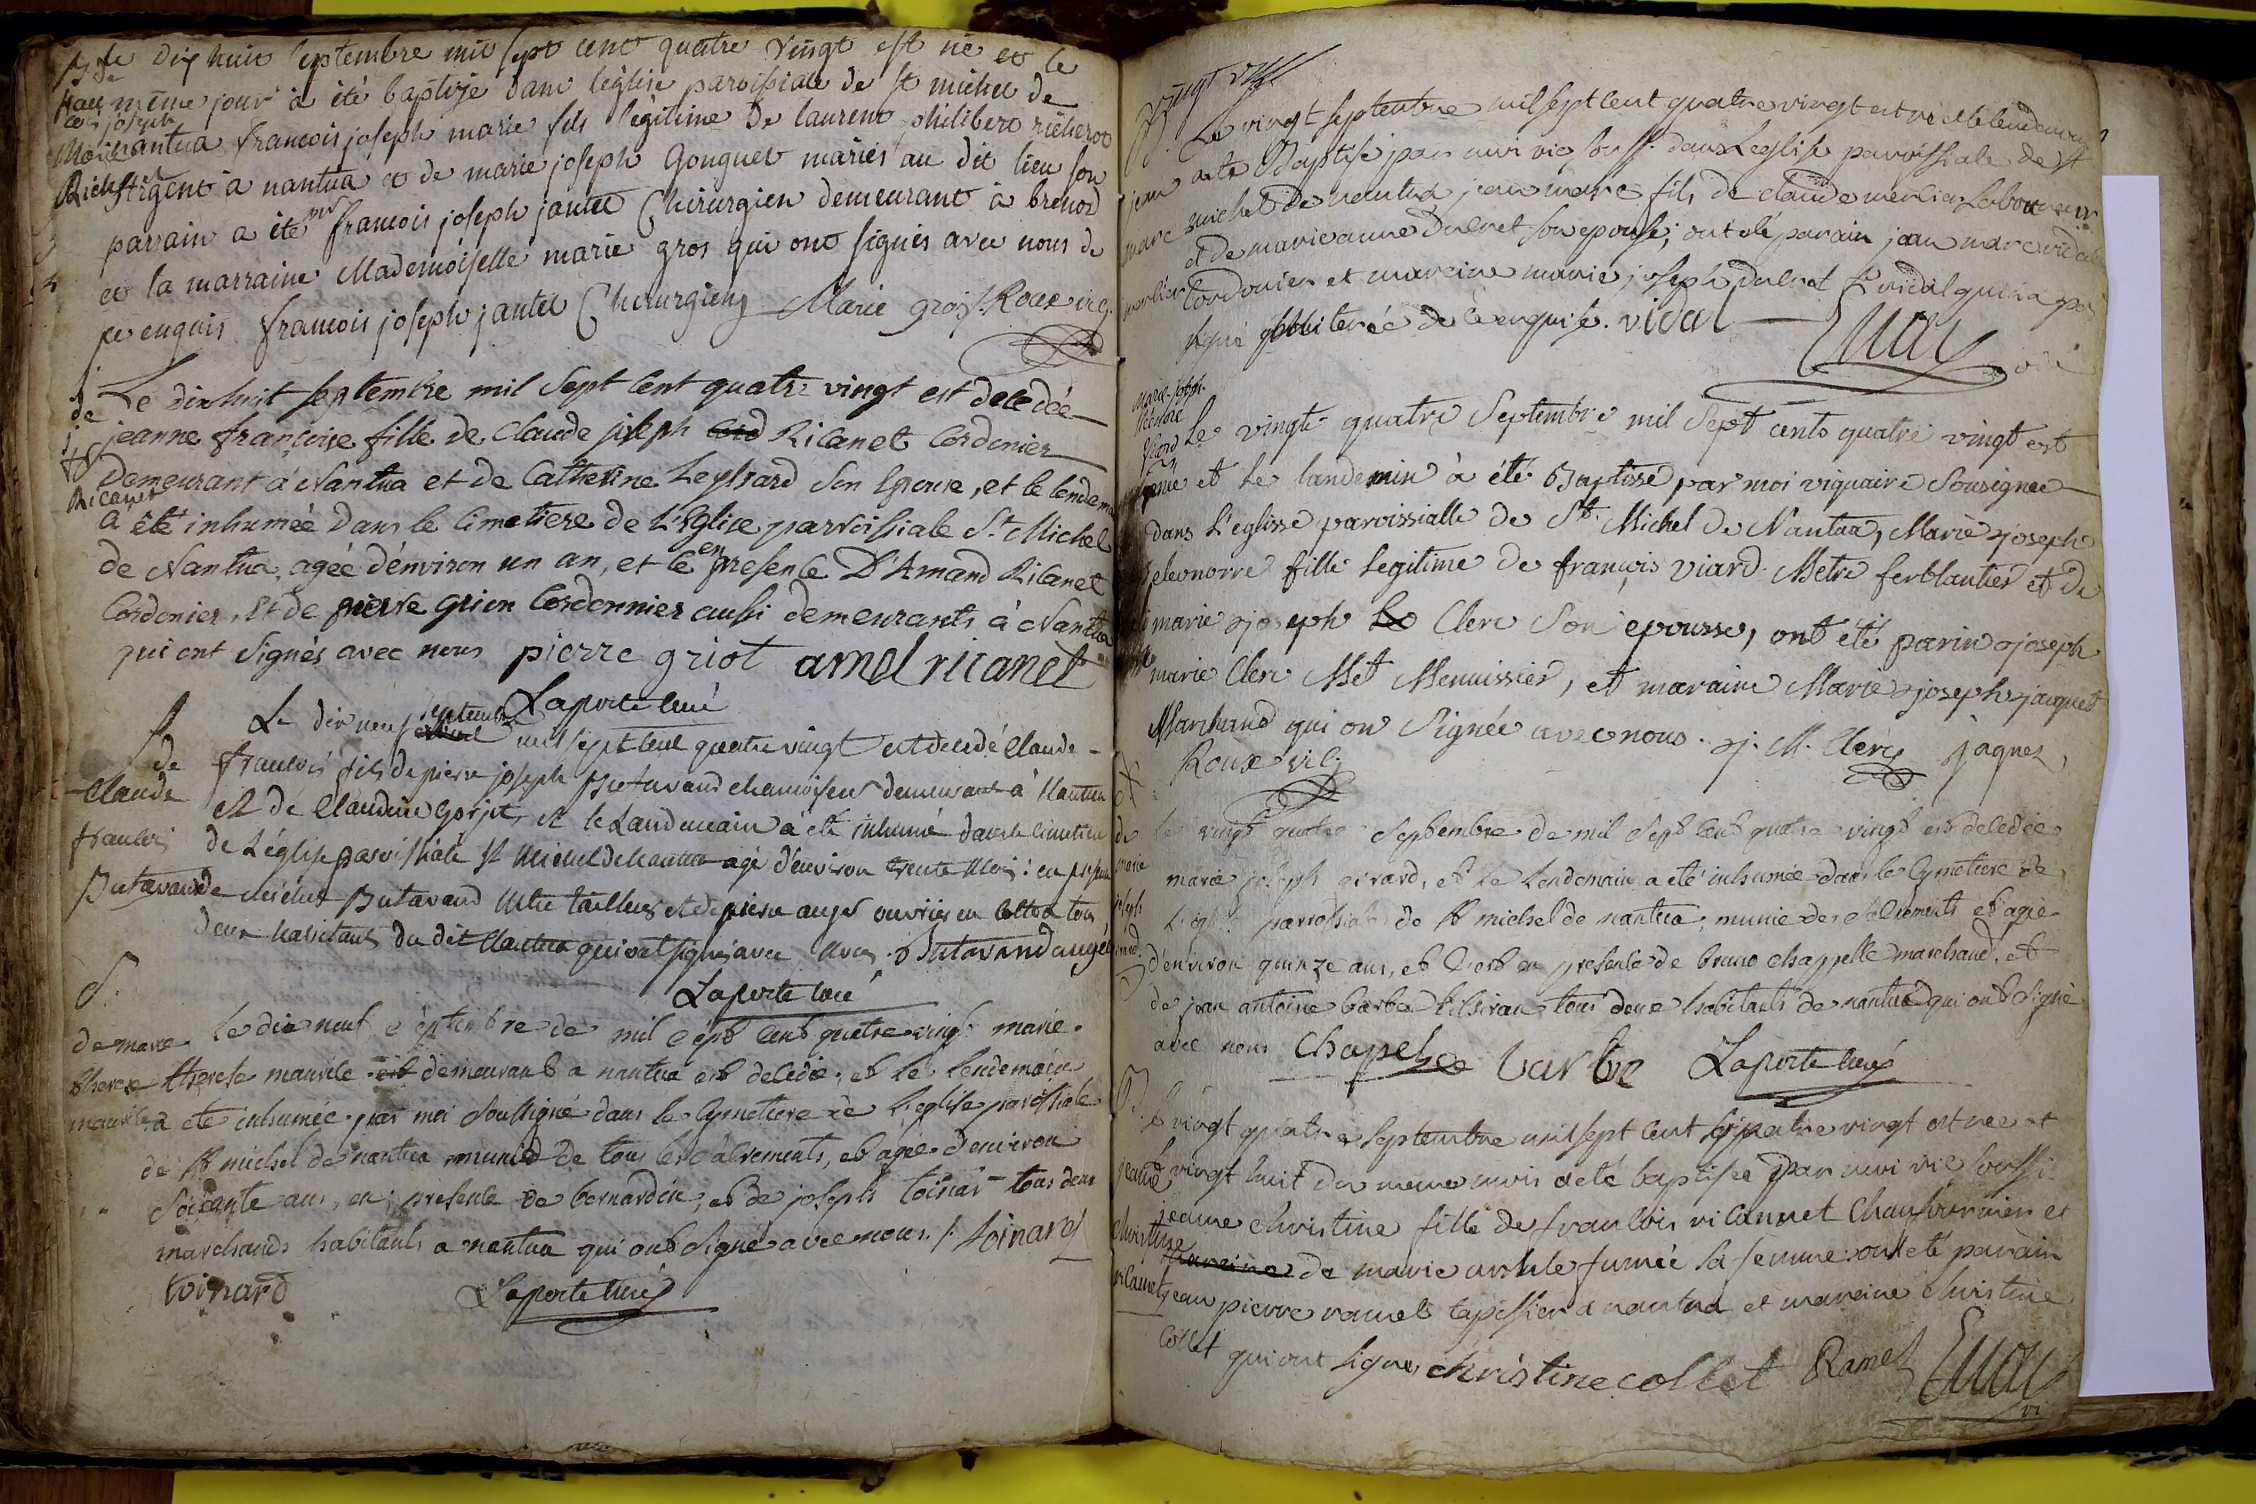 Le dix huit septembre mil sept cent quatre vingt est né et le
même jour a été baptisé dans l'église paroissiale de st michel de
nantua francois joseph marie fils légitime de laurent philibert richerot
à nantua et de marie joseph Gouguet mariés au dit lieu son
parrain a été mr francois joseph jantet Chirurgien demeurant à brenod
et la marraine Mademoiselle marie gros qui ont signés avec nous de
ce enquis francois joseph jantet Chirurgien Marie gros Roux vic.
fran
cois joseph
Marie
Le dixhuit septembre mil sept cent quatre vingt est decedée
jeanne françoise fille de Claude joseph Ricanet Cordonier
Demeurant à Nantua et de Catherine Leyssard son Epouse, et le lendem
a été inhumée dans le Cimetiere de L'Eglise parroissiale St. Michel
de Nantua, agée d'environ un an, et ce en presence D'Amand Ricanet
Cordonier, Et de pierre grion Cordonnier aussi demeurants à Nantua
qui ont signés avec nous pierre griot amel ricanet
Laporte curé
de
j
f
Ricanet
Le dix neuf septembre mil sept cent quatre vingt est decedé Claude
francois fils de pierre joseph Butavand chamoiseur demeurant à Nantua
et de Claudine Gorjet, et le Landemain a été inhumé dans le cimetiere
de L'église paroissiale st Michel de Nantua agé d'environ trente Mois: en presence
de michel Butavand Mtre tailleur et de pierre auger ouvrier en cotton tous
deux habitants du dit Nantua qui ont signés avec Nous. Butavand augé
Laporte curé
S.
de
Claude
francois
Butavand
Le dix neuf septembre de mil sept cent quatre vingt marie
therese maurile est demeurant a nantua est decedée, et le lendemain
a été inhumée par moi soussigné dans le Cymetiere de L'eglise paroissiale
de st michel de nantua munid de tous les sacrements, et agée d'environ
soixante ans, en presence de bernardin, et de joseph toinard tous deux
marchands habitants a nantua qui ont signé avec nous. / toinard
toinard Laporte curé
S.
de marie
therese
maurile
vingt
Le vingt septembre mil sept cent quatre vingt est né et le lendemain
a ete Baptisé par moi vic souss. dans L'eglise paroissiale de st
michel de nantua jean marc fils de claude merlier Laboureur
et de marie anne Dulret son epouse; ont été parain jean marc vidal
Cordonier et mareine marie joseph dulret f. vidal qui n'a pas
signé illiterée de ce enquise. vidal
jean
marc
merlier
Le vingt quatre Septembre mil Sept cents quatre vingt est
née et Le landemin à été Baptissé par moi viquaire Sousignée
dans L'eglisse paroissialle de St. Michel de Nantua, Marie joseph
eleonorre fille Legitime de françois viard Metre ferblantier et de
marie joseph Le Clerc son epousse, ont été parin joseph
marie Clerc Met Menuissier, et maraine Marie joseph jaquet
Marchand qui on Signée avec nous. j. M. Clerc jaquet
Roux vic.
Le vingt quatre septembre de mil sept cent quatre vingt est decedée
marie joseph girard, et le lendemain a été inhumée dans le Cymetiere de
L'eglise paroissiale de st michel de nantua, munie des sacrements et agée
d'environ quinze ans, et c'est en presence de bruno chappelle marchand, et
de jean antoine barbe tisseran tous deux habitants de nantua qui ont signé
avec nous Chapelle barbe Laporte curé
S
de
marie
joseph
girard
le vingt quatre septembre mil sept cent quatre vingt est née et
le vingt huit du meme mois a été baptisée par moi vic souss.
jeanne christine fille de francois ricannet Chaufournier et
de marie ursule fumée sa femme: ont été parain
jean pierre ramel tapissier a nantua et mareine christine
Collet qui ont signés christine collet Ramel
vi
jeane
christine
ricanet